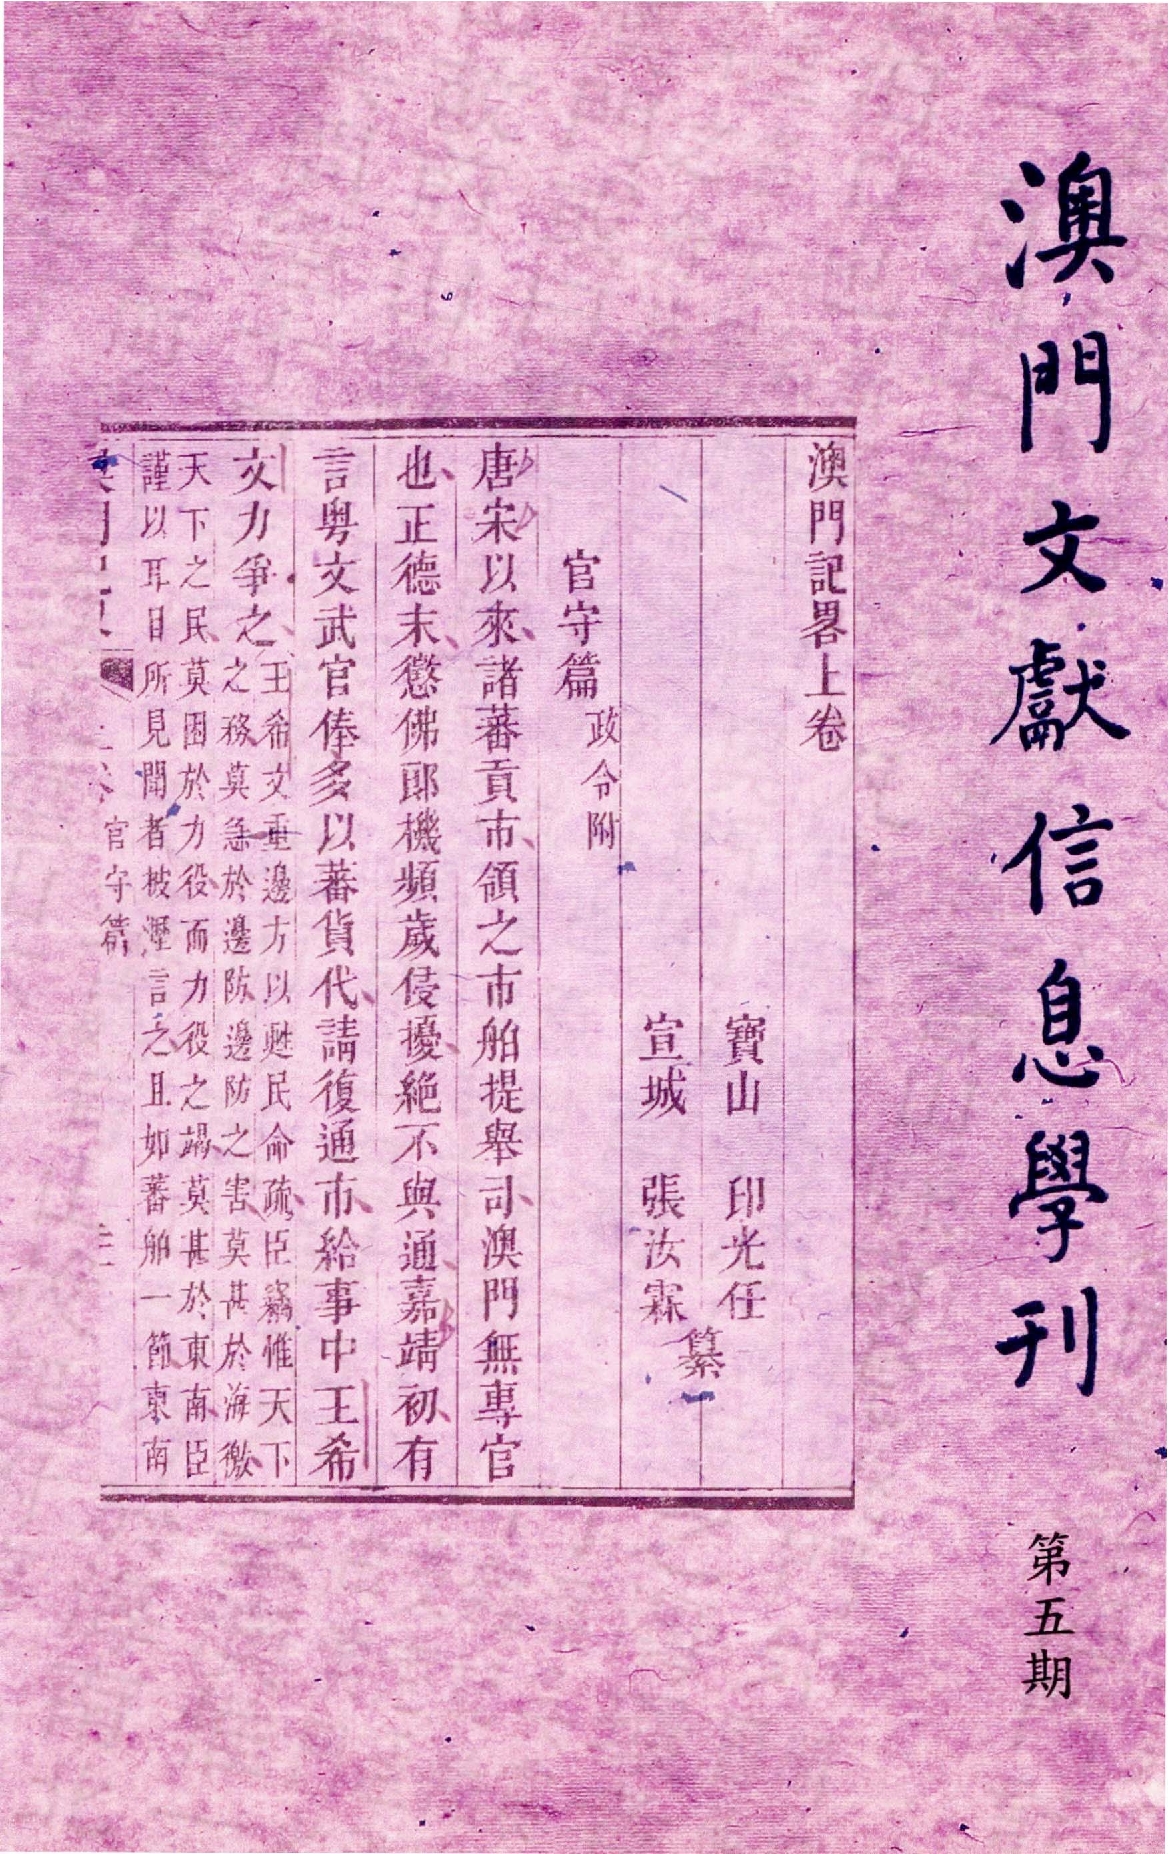 澳門文獻信息學刊
第五期
澳門記畧上卷
寶山 印光任
宣城 張汝霖
纂
官守篇 政令附
唐宋以來諸蕃貢市領之市舶提舉司澳門無專官
也正德末懲佛郎機頻歲侵擾絕不與通嘉靖初有
言粤文武官俸多以蕃貨代請復通市給事中王希
文力爭之
王希文重邊方以甦民命疏臣竊惟天下
之務莫急於邊防邊防之害莫甚於海徼
天下之民莫困於力役而力役之竭莫甚於東南臣
謹以耳目所見聞者 言之且如蕃舶一節東南
官守篇